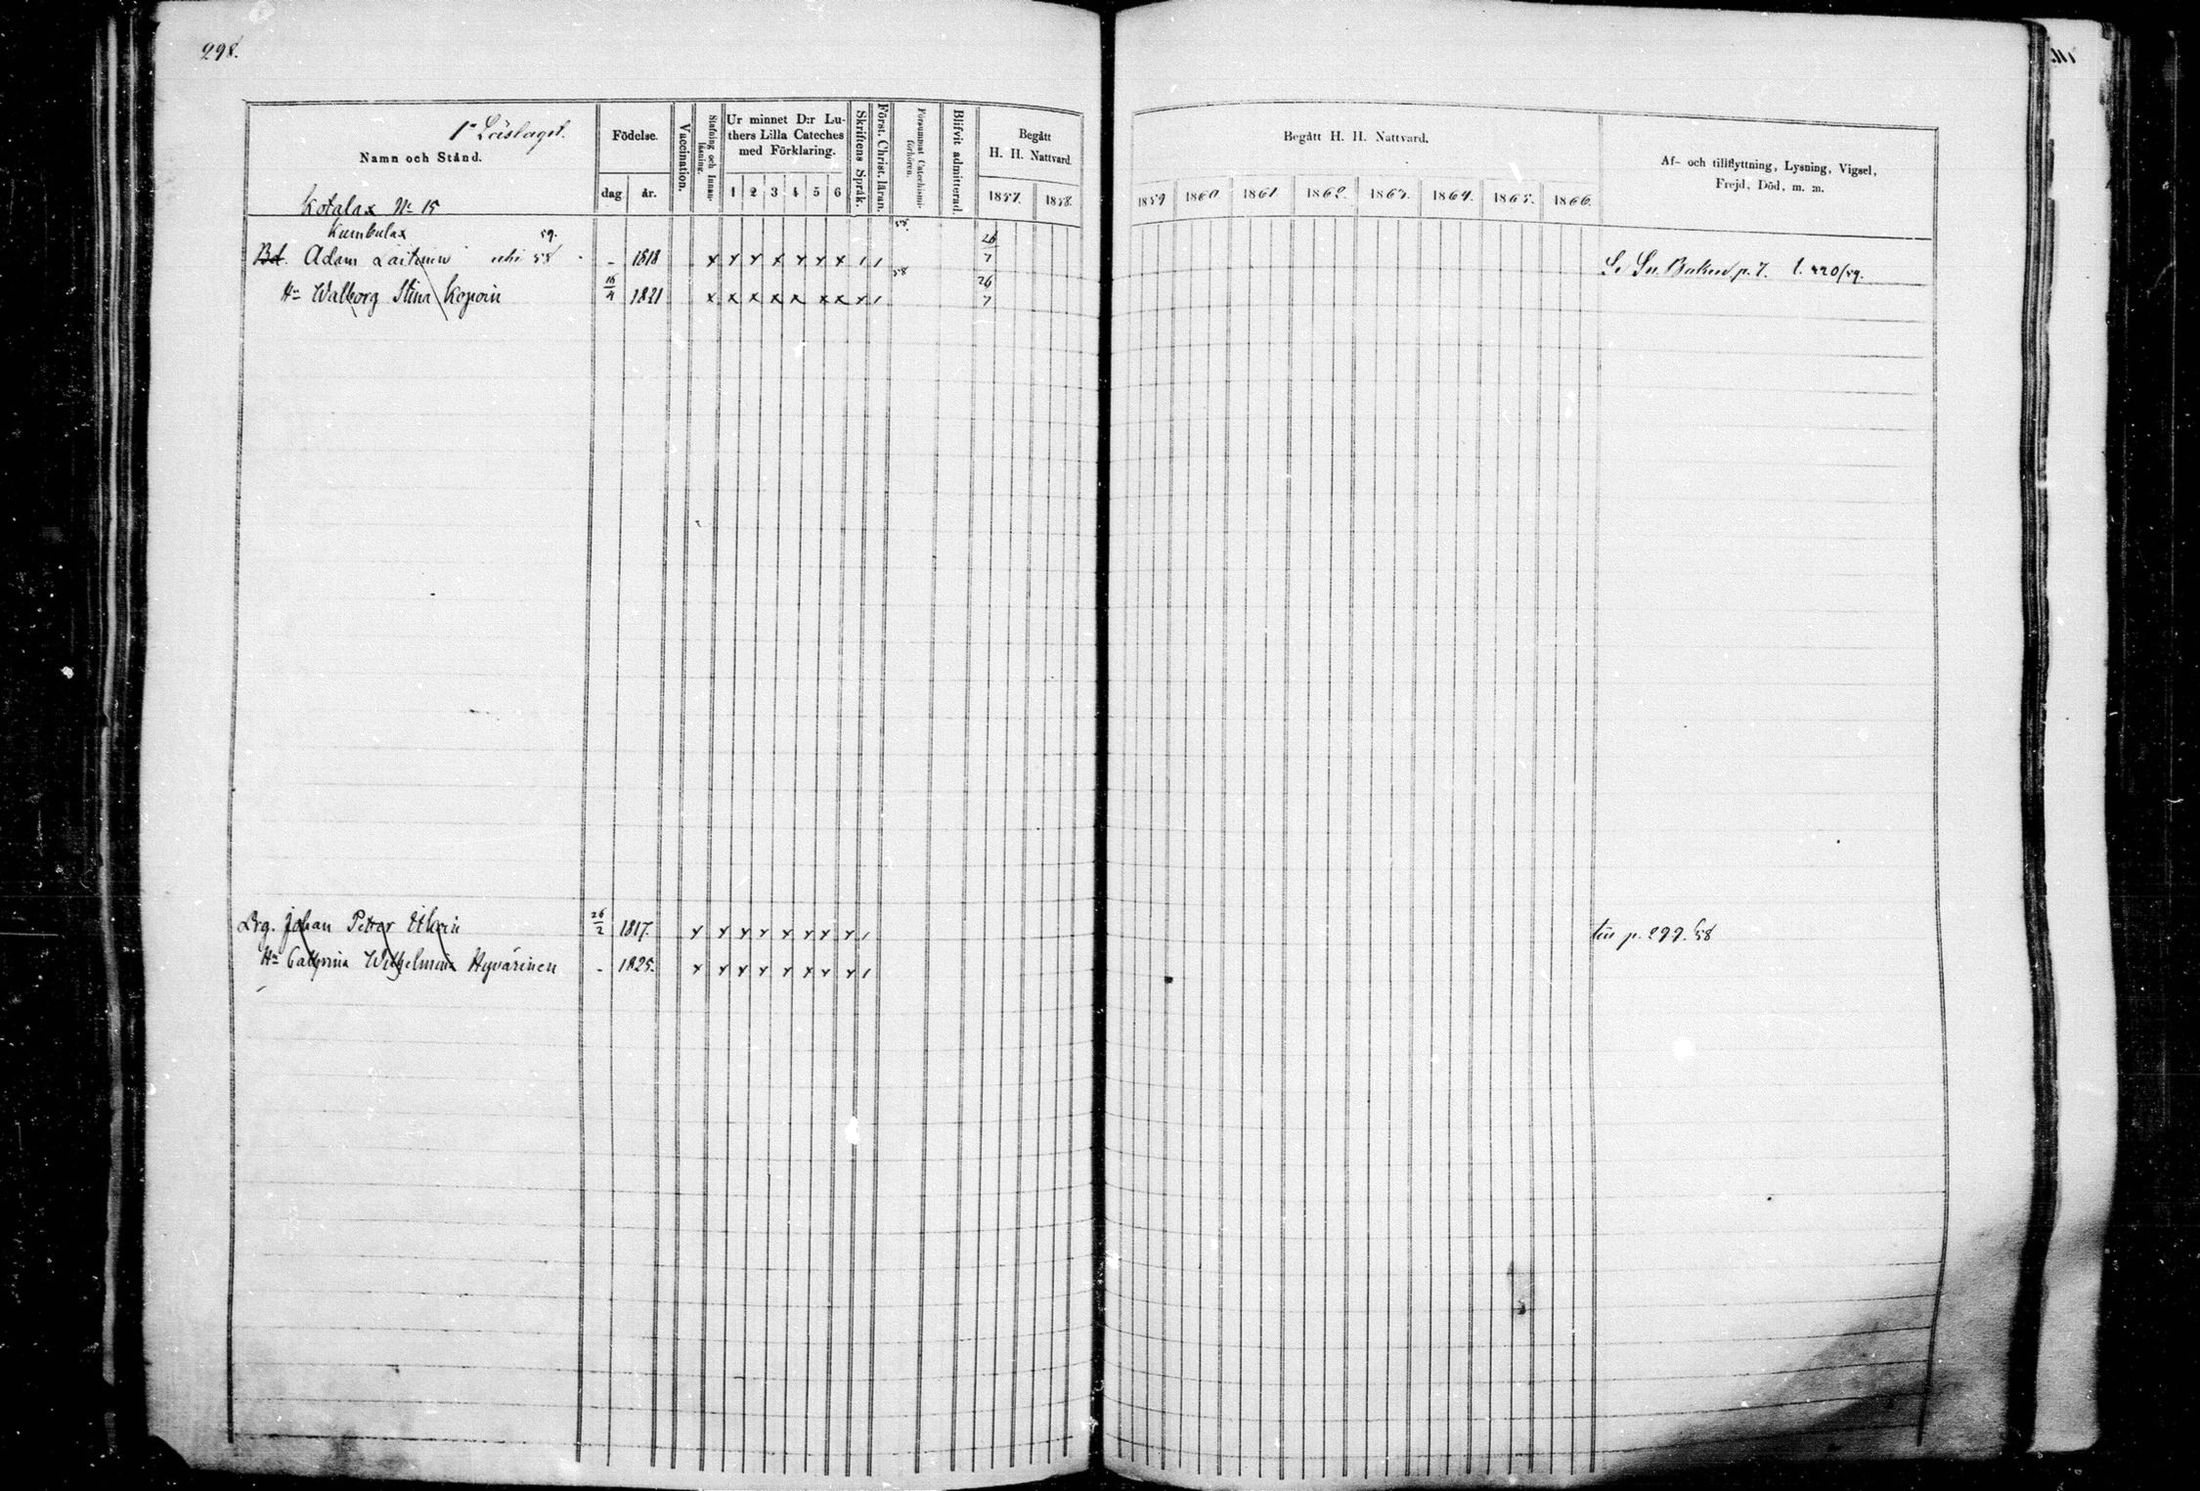 298.
1a Läslaget.
Namn och Stånd.
Födelse.
dag år.
Vaccination.
Stafning och Innanläsning.
Ur minnet D:r Luthers Lilla Cateches med Förklaring.
1 2 3 4 5 6
Skriftens Språk.
Först. Christ. läran.
Försummat Catechismiförhören.
Blifvit admitterad.
Begått H. H. Nattvard
1857. 1858.
Begått H. H. Nattvard.
1859 1860 1861 1862. 1863. 1864. 1865. 1866.
Af- och tillflyttning, Lysning, Vigsel, Frejd, Död, m. m.
Kotalax No 15
Kumbulax 59.
Bd. Adam Laitinen 58 - 1818 x x x x x x x / / 58. 26/7 p. 7. 420/59.
Hu Walborg Stina Kopoin 16/4 1821 x x x x x x x x / 58 26/7
Drg. Johan Petter 26/2 1817. x x x x x x x x / p. 299. 58
Hu Cathrina Wilhelmina Hyvärinen - 1825. x x x x x x x x /